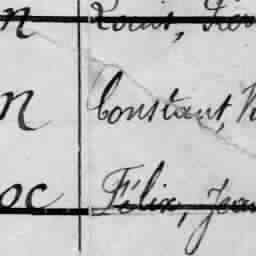 n Louis, Pier
n Constant, V
oc Félix, Jean